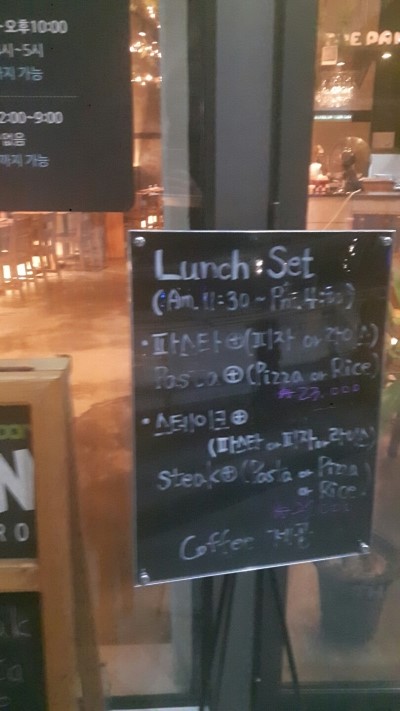 오후10:00
시~5시
까지 가능
2:00~9:00
없음
까지 가능
THE PAN
Lunch Set
(Am. 11:30 ~ Pm. 4:
• 파스타⊕(피자 or 라이스)
Pasta⊕(Pizza or Rice)
000
• 스테이크⊕
(파스타 or 피자 or 라이스)
Steak⊕(Pasta or Pizza
or Rice)
Coffee 제공
N
RO